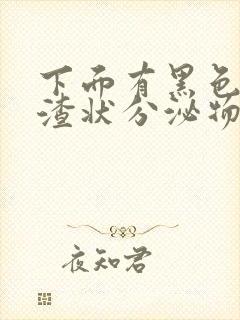 下而有黑色
渣状分泌物
夜知君